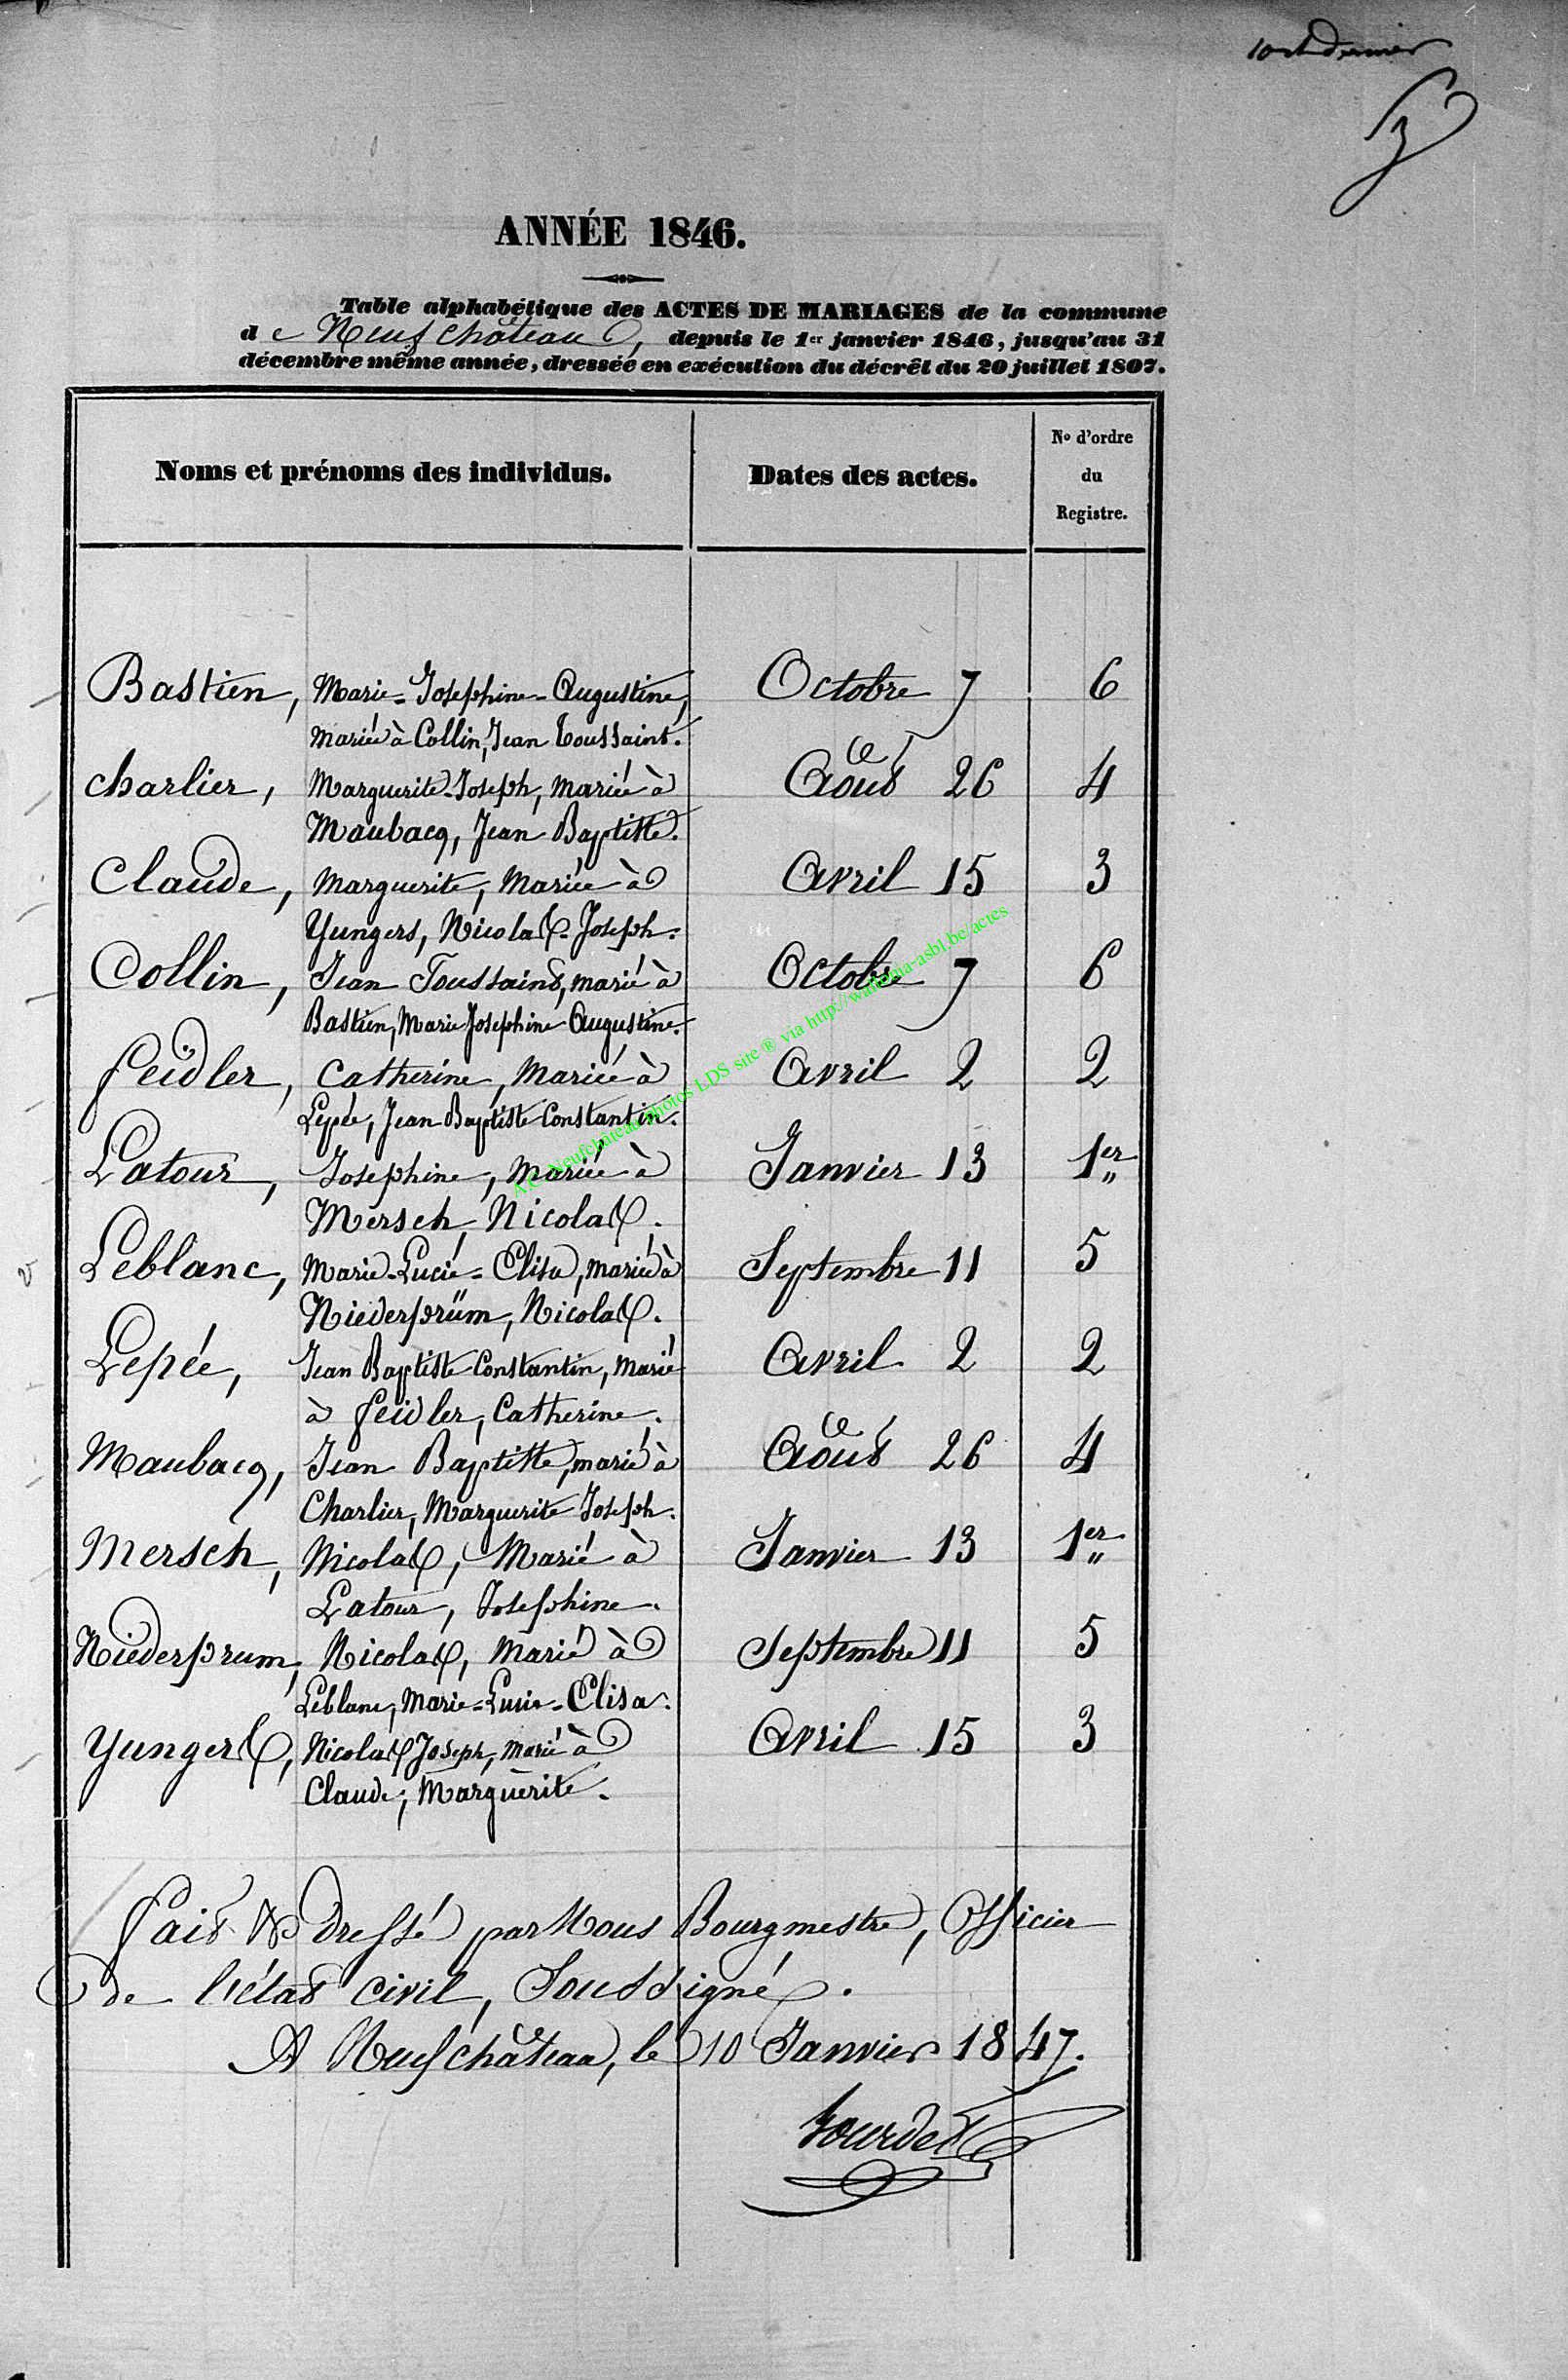 dernier
ANNÉE 1846.
Table alphabétique des ACTES DE MARIAGES de la commune
de Neufchâteau, depuis le 1er janvier 1846, jusqu'au 31
décembre même année, dressée en exécution du décrêt du 20 juillet 1807.
Noms et prénoms des individus. Dates des actes. No d'ordre du Registre.
Bastien, Marie-Josephine-Augustine, Octobre 7 6
mariée à Collin, Jean Toussaint.
Charlier, Marguerite-Joseph, mariée à Août 26 4
Maubacq, Jean Baptiste.
Claude, Marguerite, Mariée à Avril 15 3
Yungers, Nicolas-Joseph.
Collin, Jean Toussaint, marié à Octobre 7 6
Bastien, Marie Josephine Augustine.
Feidler, Catherine, Mariée à Avril 2 2
Lepée, Jean Baptiste Constantin.
Latour, Josephine, Mariée à Janvier 13 1er
Mersch, Nicolas.
Leblanc, Marie-Lucie-Elisa, mariée à Septembre 11 5
Niederprüm, Nicolas.
Lepée, Jean Baptiste Constantin, Marié Avril 2 2
à Feidler, Catherine.
Maubacq, Jean Baptiste, marié à Août 26 4
Charlier, Marguerite Joseph.
Mersch, Nicolas, Marié à Janvier 13 1er
Latour, Josephine.
Niederprum, Nicolas, Marié à Septembre 11 5
Leblanc, Marie-Lucie-Elisa.
Yungers, Nicolas Joseph, Marié à Avril 15 3
Claude, Marguerite.
Fait & dressé par Nous Bourgmestre, Officier
de l'état civil, Soussigné.
A Neufchâteau, le 10 Janvier 1847.
A.C. Neufchâteau photos LDS site ® via http://wallonia-asbl.be/actes